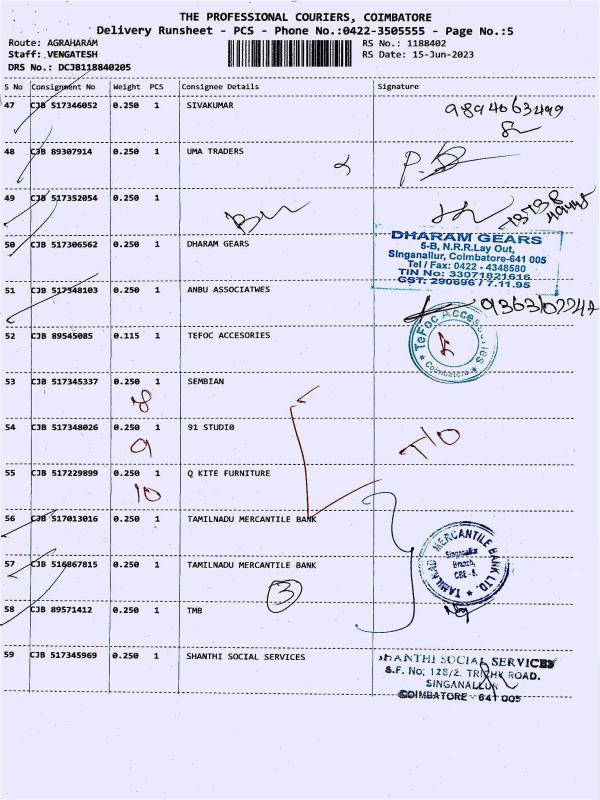 THE PROFESSIONAL COURIERS, COIMBATORE
Delivery Runsheet - PCS - Phone No.:0422-3505555 - Page No.:5
Route: AGRAHARAM RS No.: 1188402
Staff: VENGATESH RS Date: 15-Jun-2023
DRS No.: DCJB118840205
S No Consignment No Weight PCS Consignee Details Signature
47 CJB 517346052 0.250 1 SIVAKUMAR
9894063499
48 CJB 89307914 0.250 1 UMA TRADERS
49 CJB 517352054 0.250 1
50 CJB 517306562 0.250 1 DHARAM GEARS
DHARAM GEARS
5-B, N.R.R.Lay Out,
Singanallur, Coimbatore-641 005
Tel / Fax: 0422 - 4348580
TIN No: 33071821616
CST: 290696 / 7.11.95
51 CJB 517348103 0.250 1 ANBU ASSOCIATWES
52 CJB 89545085 0.115 1 TEFOC ACCESORIES
TeFoc Accessories
Coimbatore
53 CJB 517345337 0.250 1 SEMBIAN
8
54 CJB 517348026 0.250 1 91 STUDI0
9
T/O
55 CJB 517229899 0.250 1 Q KITE FURNITURE
10
56 CJB 517013016 0.250 1 TAMILNADU MERCANTILE BANK
TAMILNAD MERCANTILE BANK LTD.
Singanallur
Branch,
CBE - 5.
57 CJB 516867815 0.250 1 TAMILNADU MERCANTILE BANK
3
58 CJB 89571412 0.250 1 TMB
59 CJB 517345969 0.250 1 SHANTHI SOCIAL SERVICES
SHANTHI SOCIAL SERVICES
S.F. No; 128/2. TRICHY ROAD.
SINGANALLUR
COIMBATORE - 641 005